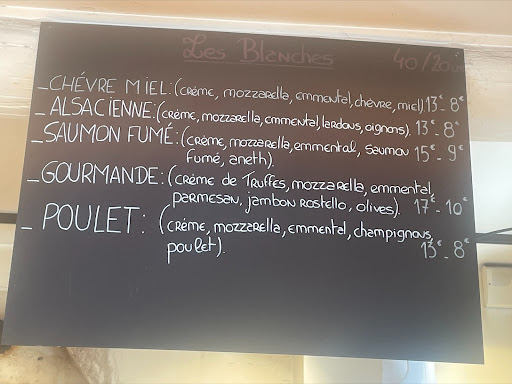 Les Blanches 40/20
_CHÉVRE MIEL:(CRÈME, mozzarella, emmental, chèvre, miel) 13€_8€
_ALSACIENNE:(CRÈME, mozzarella, emmental, lardons, oignons). 13€_8€
_SAUMON FUMÉ:(CRÈME, mozzarella, emmental, saumon 15€_9€
fumé, aneth).
_GOURMANDE:(CRÈME de Truffes, mozzarella, emmental,
parmesan, jambon rostello, olives). 17€_10€
_POULET: (CRÈME, mozzarella, emmental, champignons,
poulet). 13€_8€